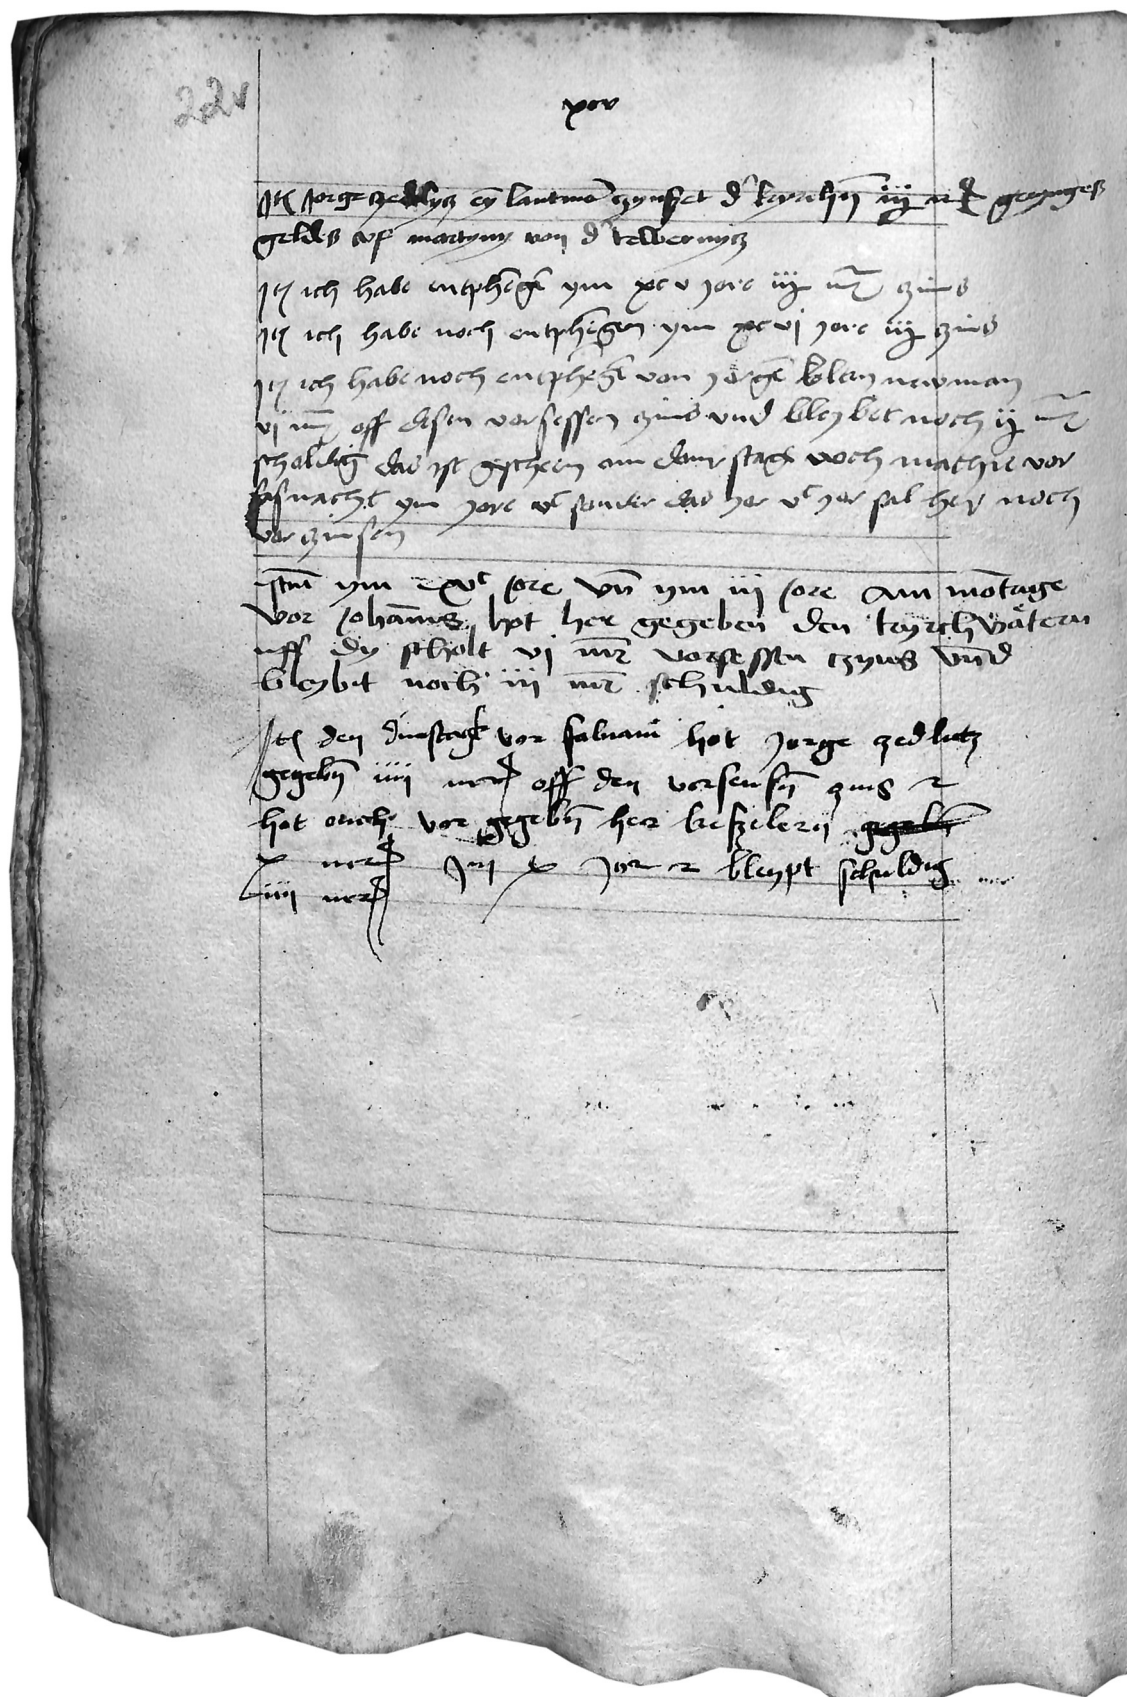 22v
xcv
Itē Jorge czedlycz ey lantman czynszet d' kyrchē iij mrc geryngES
geldes uf martyny von d'
Itē ich habe entphēgē ym xcv jore iij mr czins
Itē ich habe noch entphēgen ym xcvi jore iij czins
Itē ich habe noch entphēgē von jorgē klein newman
vj mr off desen vorsessen czins vnd bleybet noch ij mr
scholdig das ist gescheen am donrstage noch mathie vor
fasnacht ym jore vc sonder das jor vc jor sal her noch
vorczinsen
ym xvc jore vn̄ ym iij jore Am mōtage
vor Johannis hot her gegeben den kyrchvätern
uff dy scholt vj mr vorsessen czyns vnd
bleybit noch iij mr schuldig
Itē den dinstag vor hot jorge zedlitz
gegebn̄ iiij mrc off den vorsensn̄ zins
hot ouch vor gegebn̄ her keszelern gegebn̄
x mrc Im x jor bleypt schuldig
iiij mrc